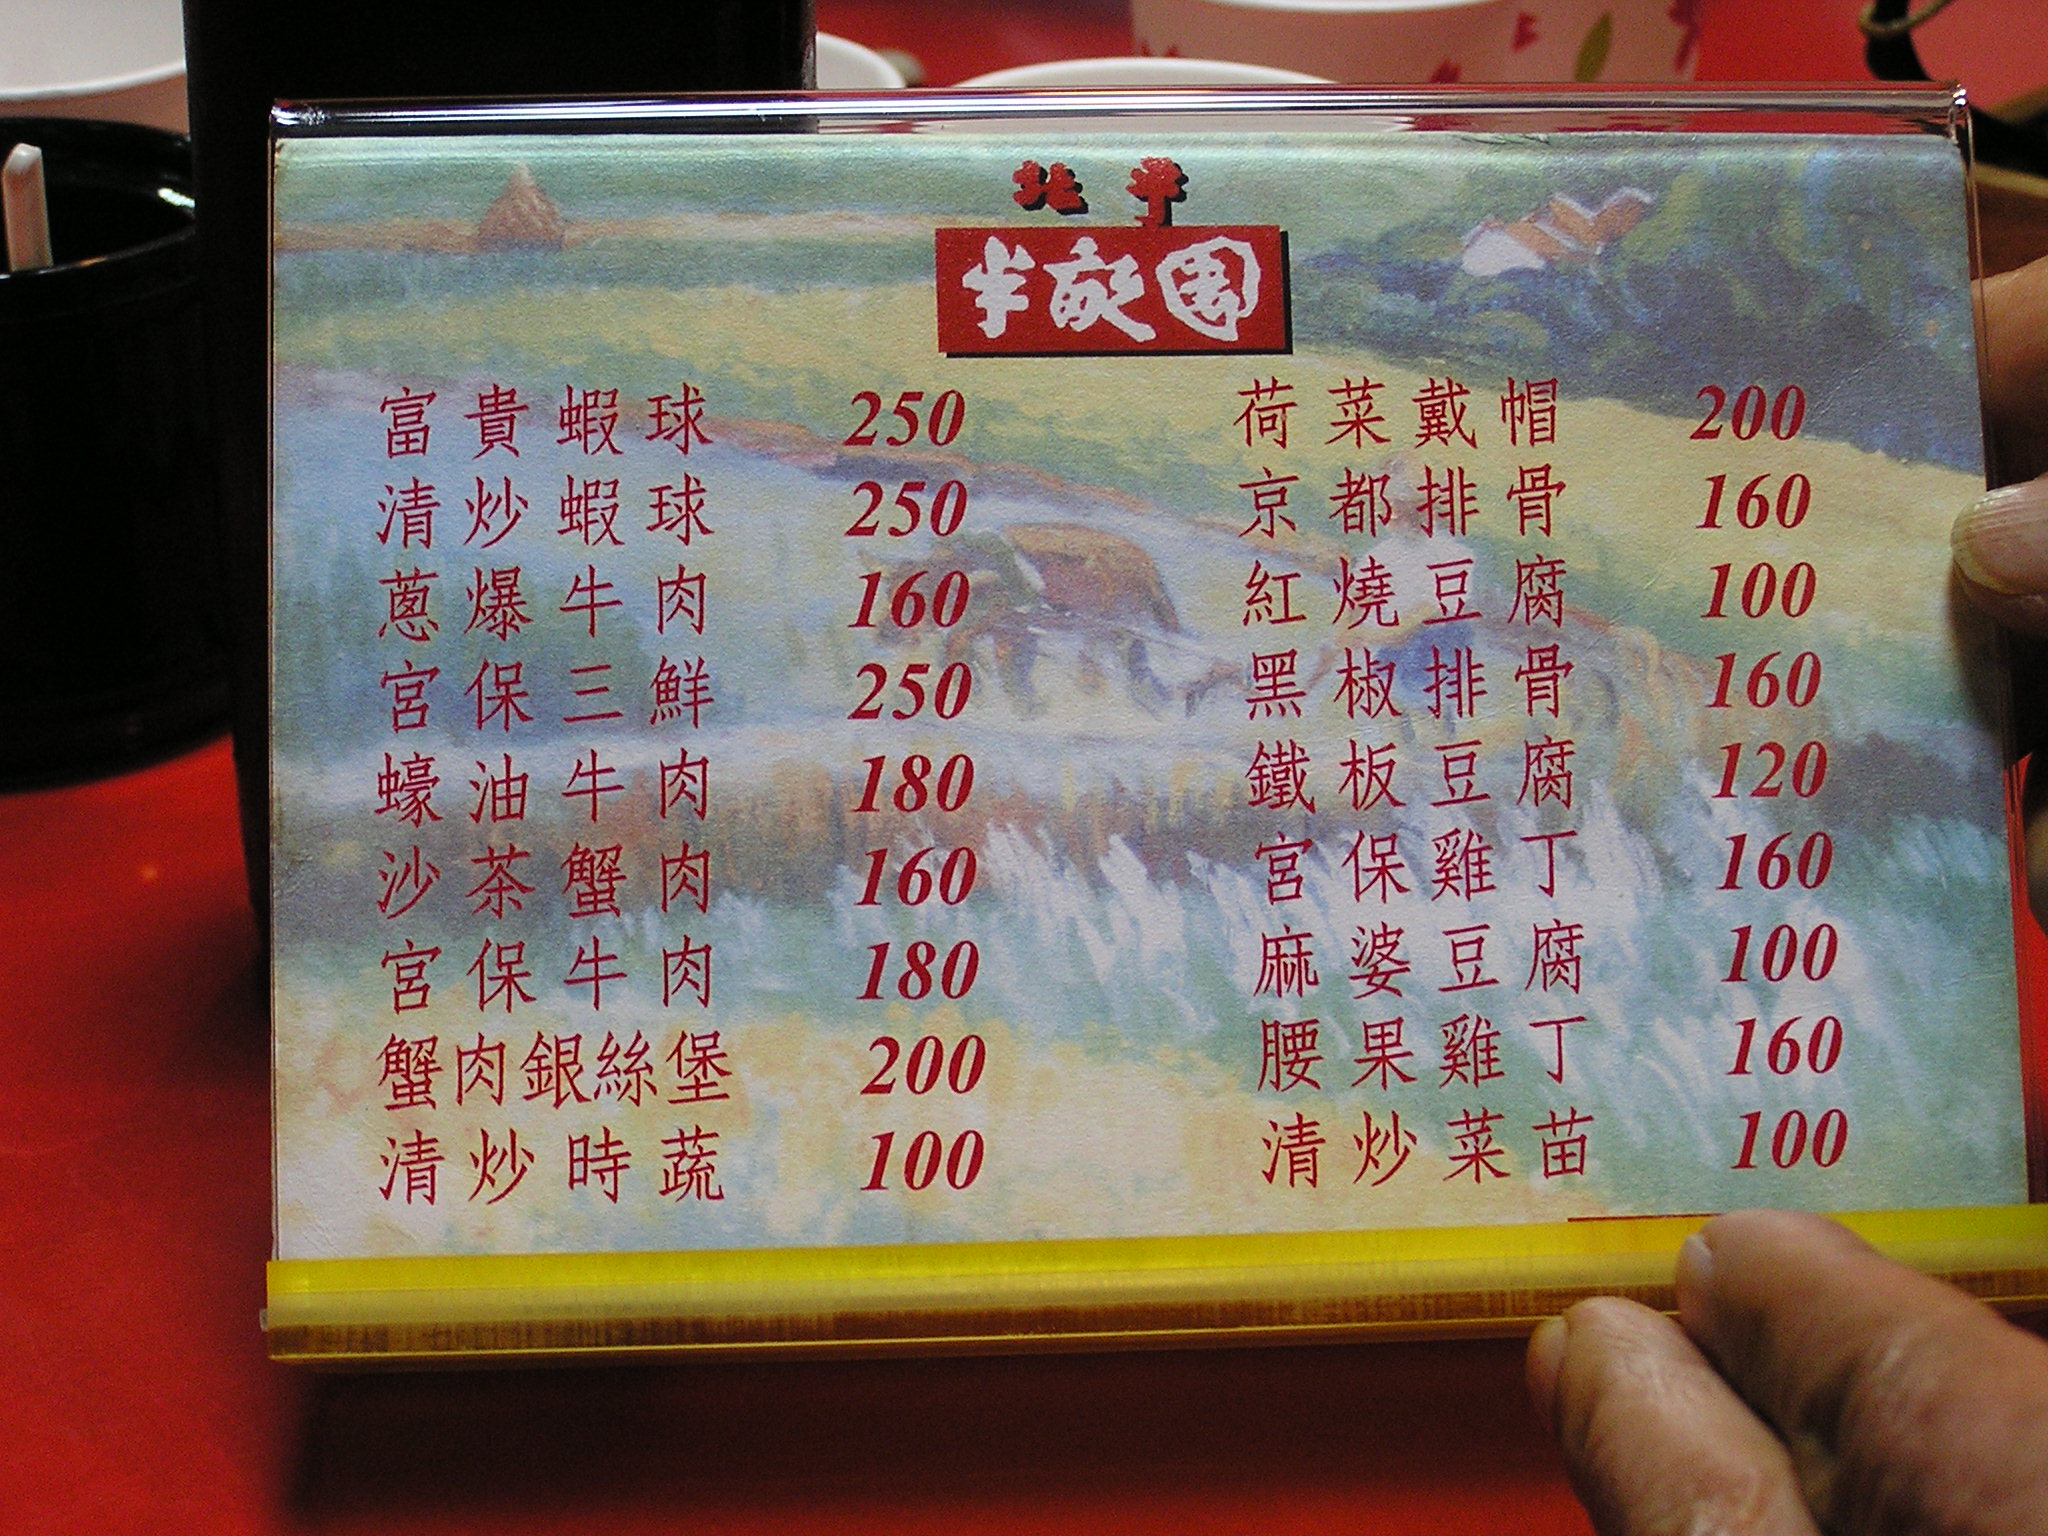 北平
半畝園
富貴蝦球 250
清炒蝦球 250
蔥爆牛肉 160
宮保三鮮 250
蠔油牛肉 180
沙茶蟹肉 160
宮保牛肉 180
蟹肉銀絲堡 200
清炒時蔬 100
荷菜戴帽 200
京都排骨 160
紅燒豆腐 100
黑椒排骨 160
鐵板豆腐 120
宮保雞丁 160
麻婆豆腐 100
腰果雞丁 160
清炒菜苗 100